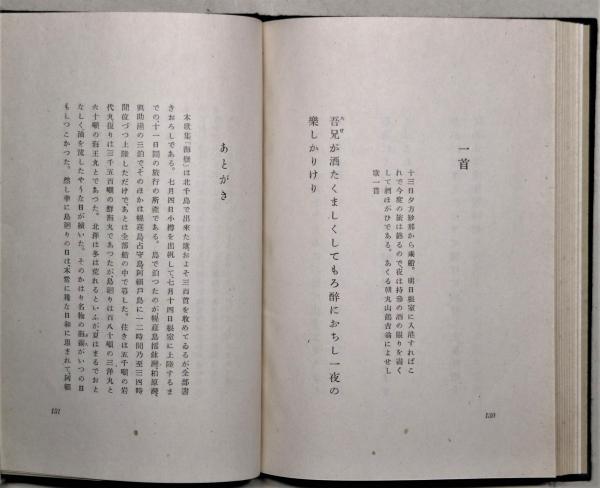 一首
十三日夕方紗那から乘船。明日根室に入港すればこ
れで今度の旅は終るので夜は持參の酒の限りを盡く
して酒ほがひである。あくる朝丸山鶴吉翁によせし
歌一首
吾兄が酒たくましくしてもろ醉におちし一夜の
樂しかりけり
130
あとがき
本歌集『海嶽』は北千島で出來た歌およそ三百首を收めてゐるが全部書
きおろしである。七月四日小樽を出帆して七月十四日根室に上陸するま
での十一日間の旅行の所產である。島で泊つたのが幌筵島擂鉢灣、柏原灣、
與助灣の三泊で、そのほかは幌筵島占守島阿賴戸島に一二時間乃至三四時
間宛づつ上陸しただけで、あとは全部船の中で暮した。往きは五千噸の岩
代丸復りは三千五百噸の鮮海丸であつたが、島廻りは百八十噸の三洋丸と
六十噸の海王丸とであつた。北洋は冬は荒れるといふが夏はまるでおと
なしく油を流したやうな日が續いた。そのかはり名物の海霧がいつの日
もしつこかつた。然し幸に島廻りの日は本當に稀な日和に惠まれて阿賴
131